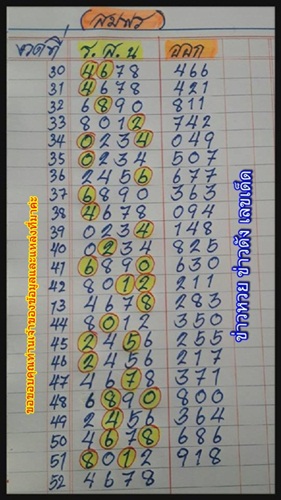 สมพร
งวดที่ ร.ส.น ออก
30 4678 466
31 4678 421
32 6890 811
33 8012 742
34 0234 049
35 0234 507
36 2456 677
37 6890 363
38 4678 094
39 0234 148
40 0234 825
41 6890 630
42 8012 211
13 4678 283
44 8012 350
45 2456 255
46 2456 217
47 4678 371
48 6890 800
49 2456 364
50 4678 686
51 8012 918
52 4678
ขอขอบคุณท่านเจ้าของข้อมูลและแหล่งที่มาค่ะ
ข่าวหวย ข่าวดัง เลขเด็ด